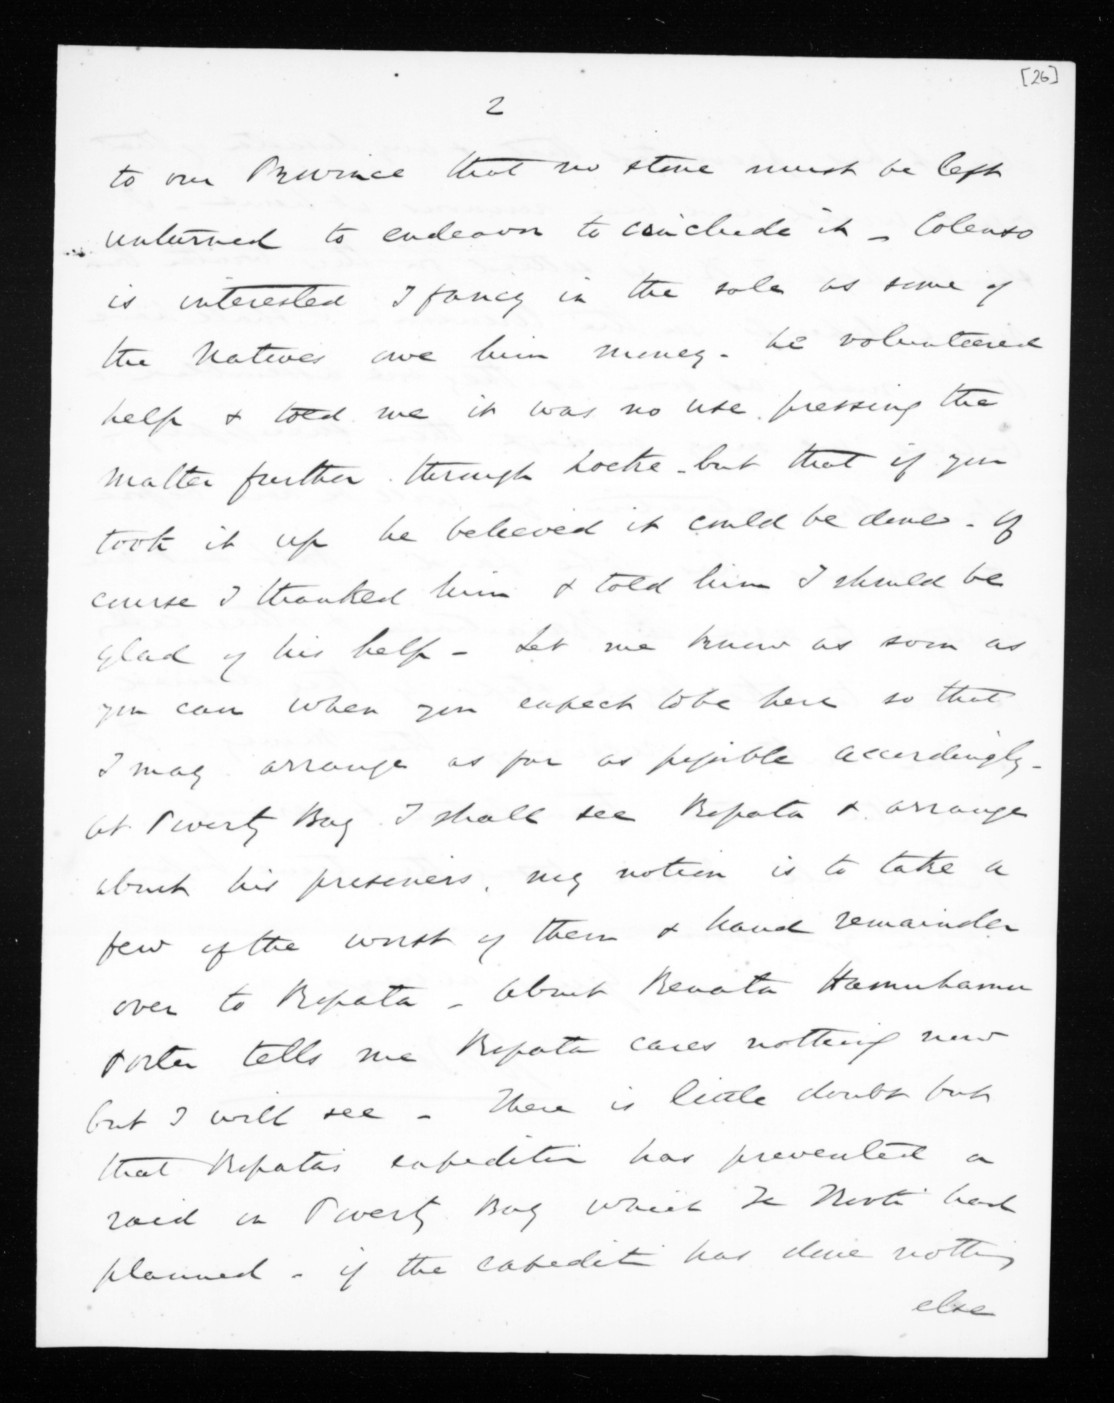 [26]
2
to our Province that no stone must be left
unturned to endeavor to conclude it - Colenso
is interested I fancy in the sale as some of
the Natives owe him money - he volunteered
help & told me it was no use pressing the
matter further through Locke - but that if you
took it up he believed it could be done - Of
course I thanked him & told him I should be
glad of his help - Let me know as soon as
you can when you expect to be here so that
I may arrange as far as possible accordingly -
At Poverty Bay I shall see Ropata & arrange
about his prisoners, my notion is to take a
few of the worst of them & hand remainder
over to Ropata - About Renata
Porter tells me Ropata cares nothing now
but I will see - There is little doubt but
that Ropata's expedition has prevented a
raid on Poverty Bay which Te Kooti had
planned - if the expedition has done nothing
else